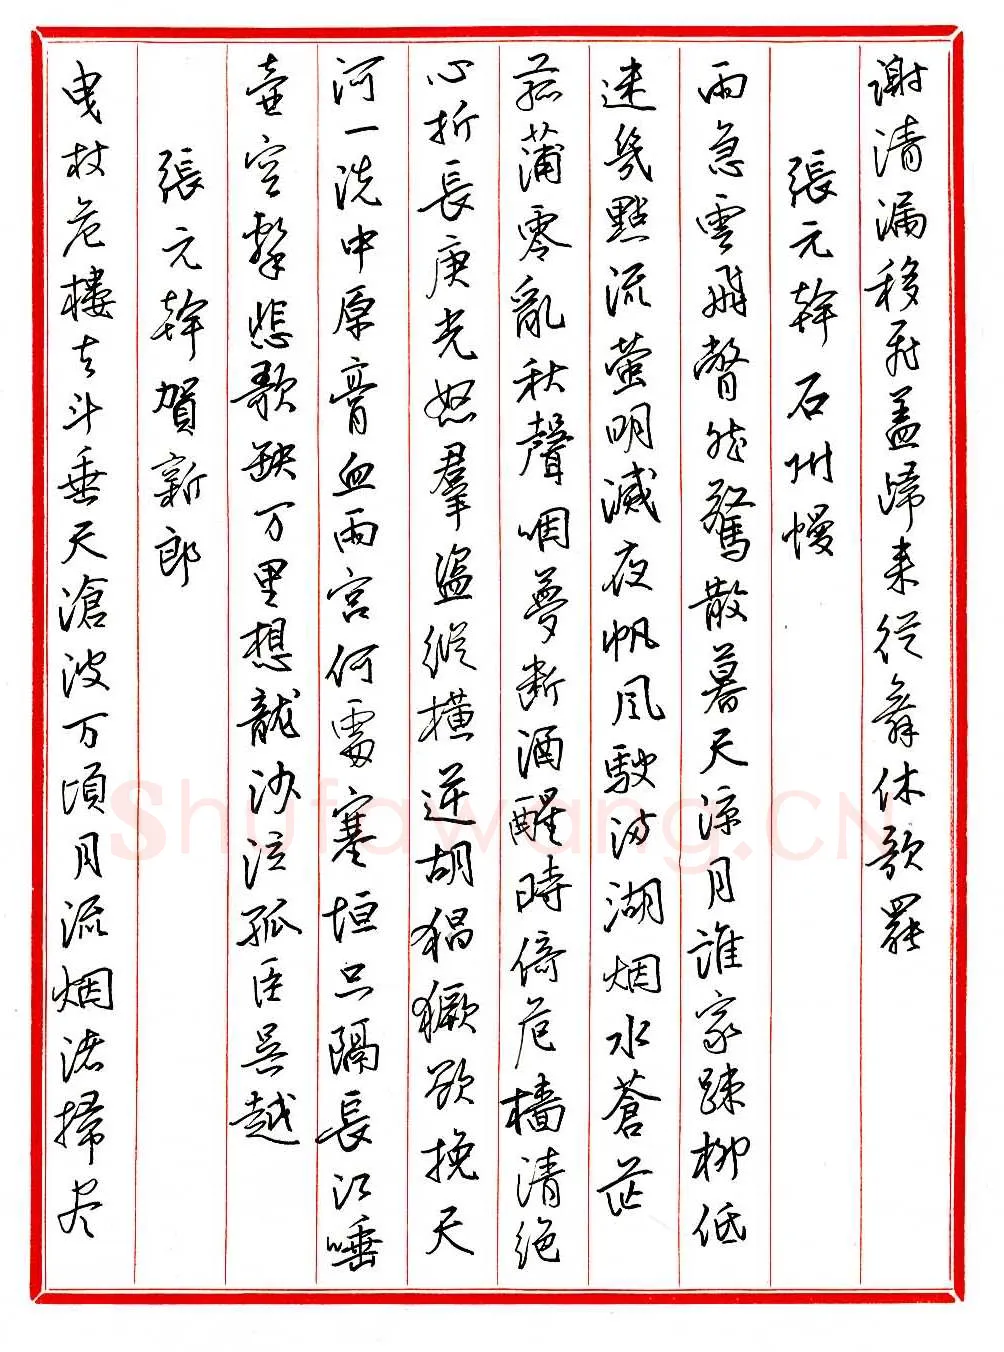 謝清漏移飛蓋歸来從舞休歌罷
張元幹石州慢
雨急雲飛瞥然驚散暮天涼月誰家疎柳低
迷幾點流萤明滅夜帆風駛滿湖烟水蒼茫
菰蒲零亂秋聲咽夢斷酒醒時倚危檣清絕
心折長庚光怒羣盜縱橫逆胡猖獗欲挽天
河一洗中原膏血兩宮何處塞垣只隔長江唾
壺空擊悲歌缺万里想龍沙泣孤臣吳越
張元幹賀新郎
曳杖危樓去斗垂天滄波万頃月流烟渚掃尽
Shufawang.CN